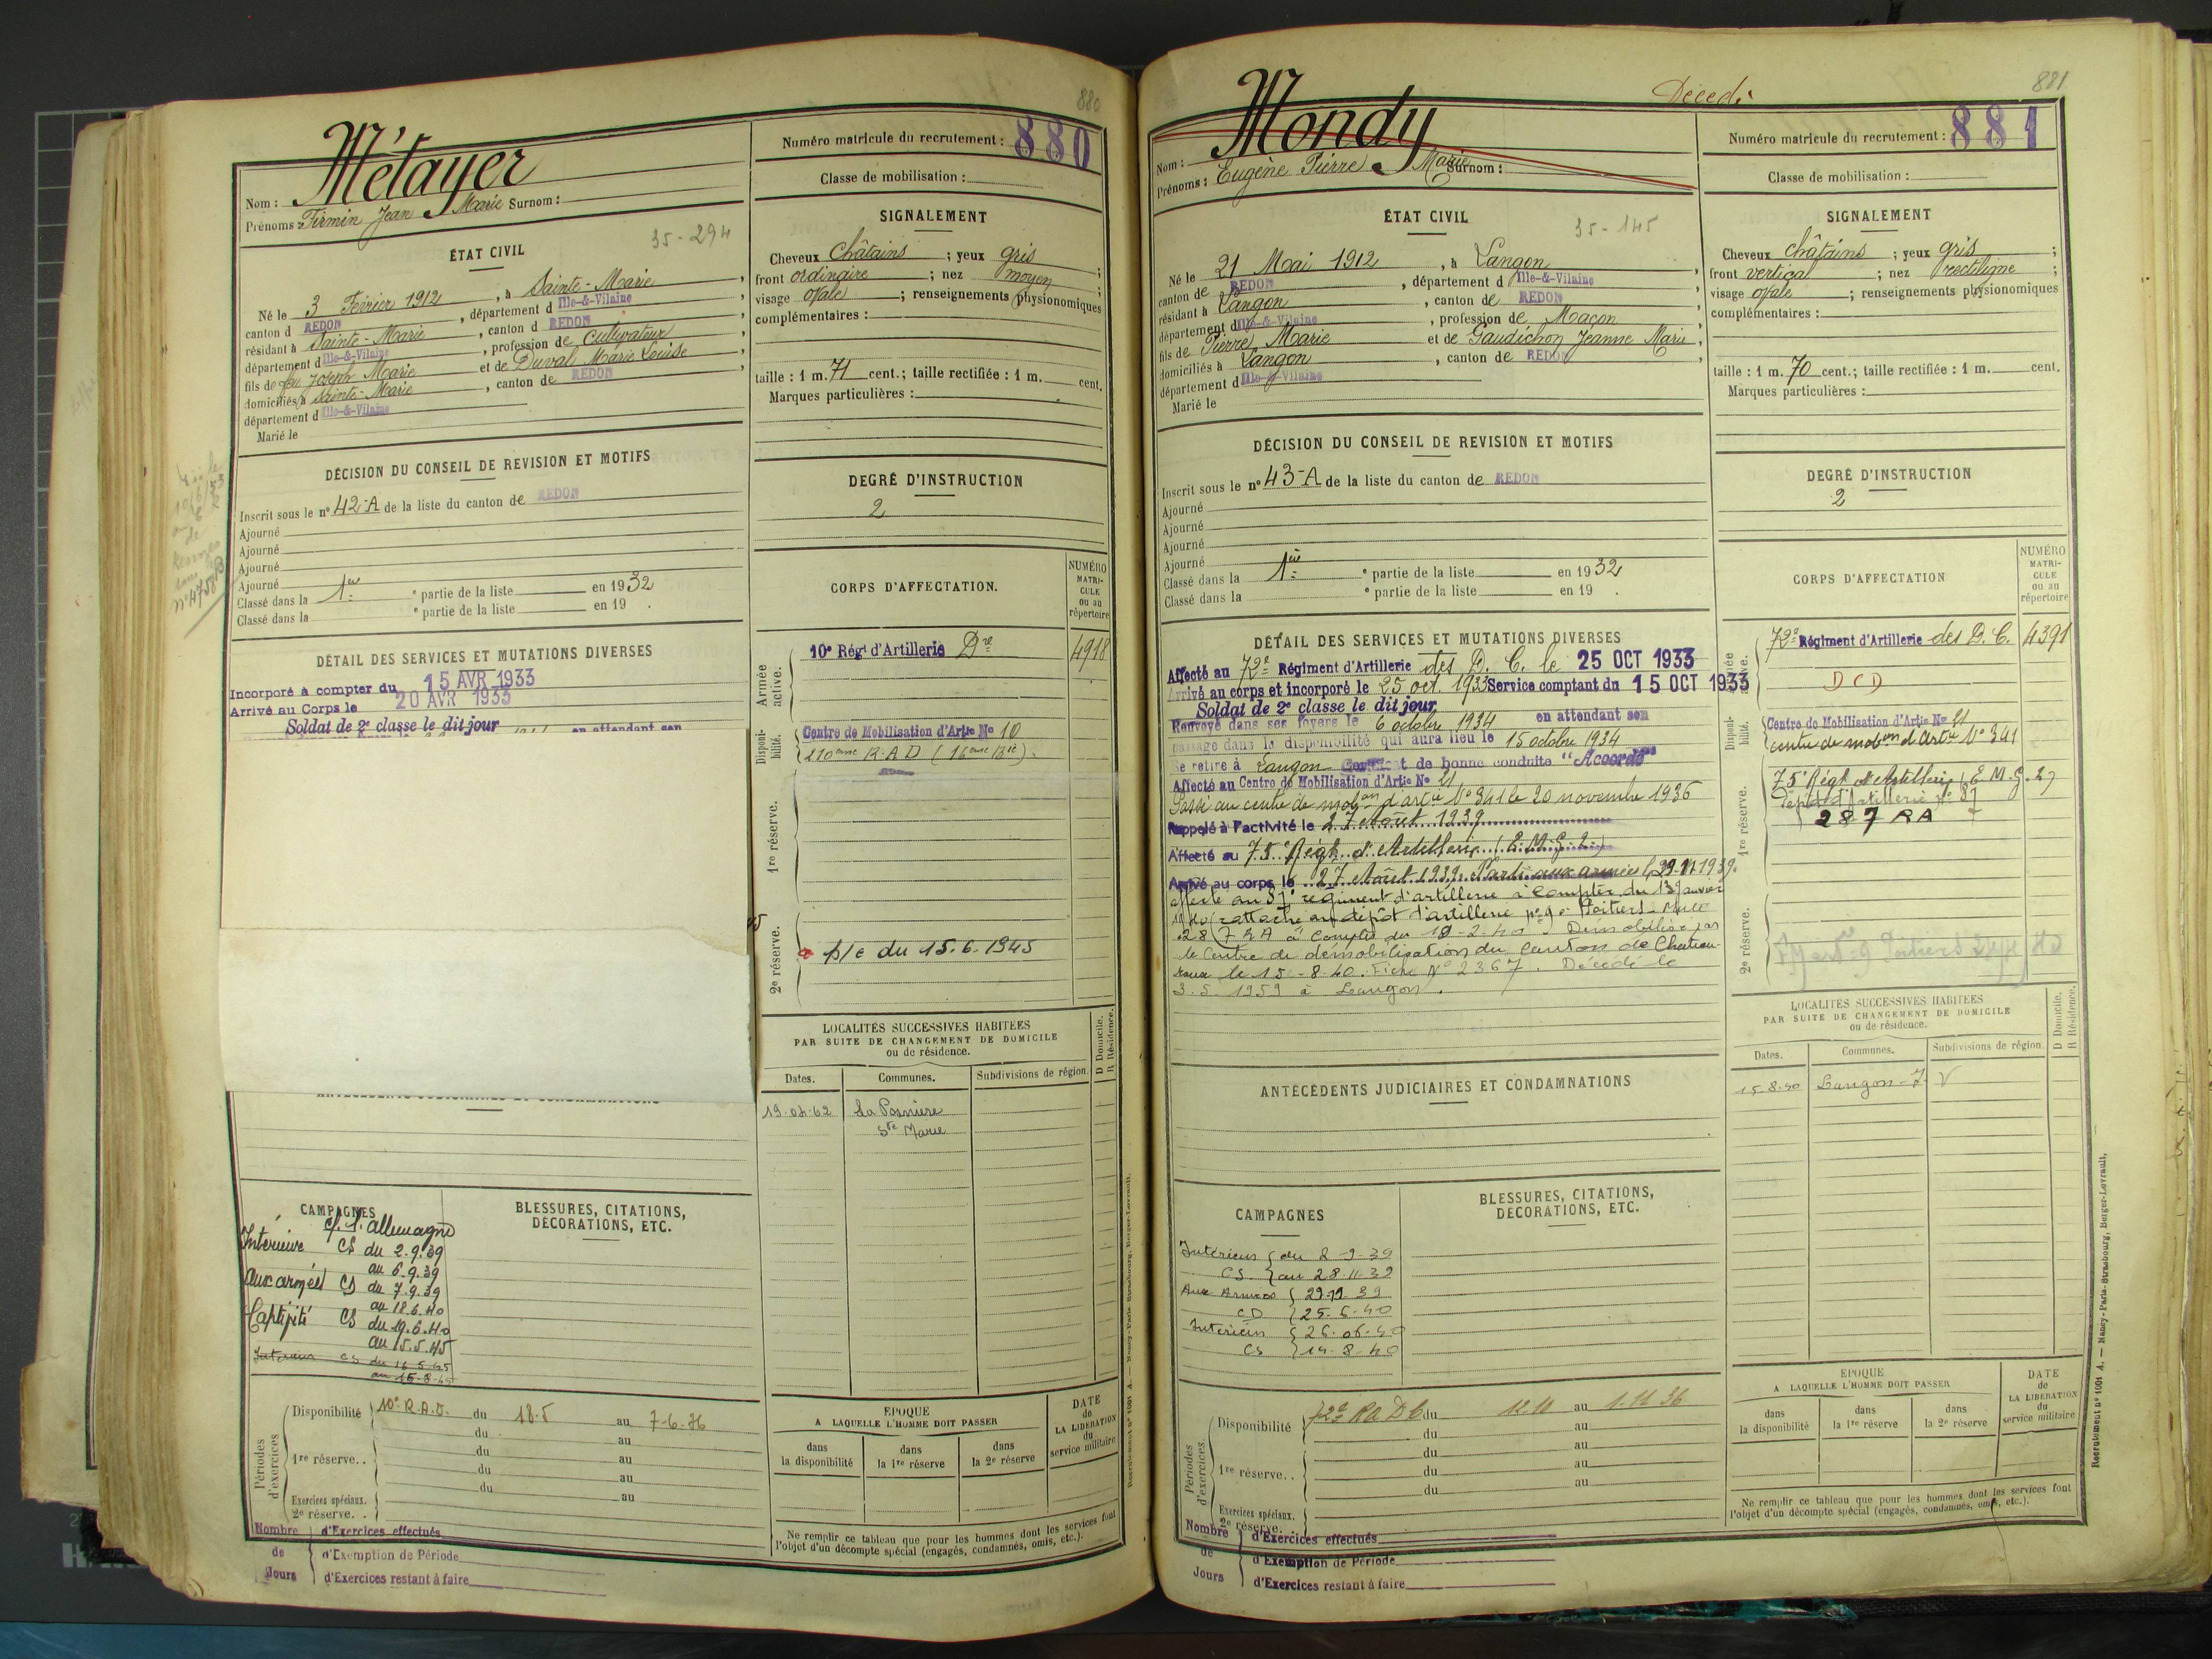 880
Métayer
Nom :
Prénoms : Firmin Jean Marie Surnom :
Numéro matricule du recrutement : 880
Classe de mobilisation :
ÉTAT CIVIL
35-294
Né le 3 Février 1912, à Sainte-Marie,
canton d REDON, département d Ille-&-Vilaine,
résidant à Sainte-Marie, canton d REDON,
département d Ille-&-Vilaine, profession de Cultivateur,
fils de feu Joseph Marie et de Duval Marie Louise,
domiciliés à Sainte-Marie, canton de REDON,
département d Ille-&-Vilaine
Marié le
SIGNALEMENT
Cheveux Châtains ; yeux gris ;
front ordinaire ; nez moyen ;
visage ovale ; renseignements physionomiques
complémentaires :
taille : 1 m. 71 cent.; taille rectifiée : 1 m. cent.
Marques particulières :
DÉCISION DU CONSEIL DE REVISION ET MOTIFS
Inscrit sous le nº 42-A de la liste du canton de REDON
Ajourné
Ajourné
Ajourné
Ajourné
Classé dans la 1ère e partie de la liste en 1932
Classé dans la e partie de la liste en 19 .
nº 4758
DEGRÉ D'INSTRUCTION
2
DÉTAIL DES SERVICES ET MUTATIONS DIVERSES
Incorporé à compter du 15 AVR 1933
Arrivé au Corps le 20 AVR 1933
Soldat de 2e classe le dit jour
en attendant son
CORPS D'AFFECTATION.
NUMÉRO MATRICULE ou au répertoire
Armée active.
10e Régt d'Artillerie Dre 4918
Disponibilité.
Centre de Mobilisation d'Artie Nº 10
210ème R.A.D (16ème Bie).
1re réserve.
2e réserve.
p/c du 15.6.1945
LOCALITÉS SUCCESSIVES HABITÉES
PAR SUITE DE CHANGEMENT DE DOMICILE
ou de résidence.
D Domicile.
R Résidence.
Dates. Communes. Subdivisions de région.
19-01-62
Ste Marie
CAMPAGNES
c/. l. allemagne
Intérieure CS du 2.9.39
au 6.9.39
Aux armées CS du 7.9.39
au 18.6.40
Captivité CS du 19.6.40
au 15.5.45
Intérieur CS du 16-5-45
au 15-8-45
BLESSURES, CITATIONS,
DÉCORATIONS, ETC.
Périodes d'exercices
Disponibilité 10e R.A.D. du 18-5 au 7-6-36
du au
1re réserve.. du au
du au
du au
Exercices spéciaux.
2e réserve. .
Nombre de Jours
d'Exercices effectués
d'Exemption de Période
d'Exercices restant à faire
ÉPOQUE
A LAQUELLE L'HOMME DOIT PASSER
dans la disponibilité
dans la 1re réserve
dans la 2e réserve
DATE de LA LIBÉRATION du service militaire
Ne remplir ce tableau que pour les hommes dont les services font
l'objet d'un décompte spécial (engagés, condamnés, omis, etc.).
Recrutement nº 1001 A. — Nancy-Paris-Strasbourg, Berger-Levrault.
881
Décédé
Mondy
Nom :
Prénoms : Eugène Pierre Marie Surnom :
Numéro matricule du recrutement : 881
Classe de mobilisation :
ÉTAT CIVIL
35-145
Né le 21 Mai 1912, à Langon,
canton de REDON, département d Ille-&-Vilaine,
résidant à Langon, canton de REDON,
département d Ille-&-Vilaine, profession de Maçon,
fils de Pierre Marie et de Gaudichon Jeanne Marie,
domiciliés à Langon, canton de REDON,
département d Ille-&-Vilaine
Marié le
SIGNALEMENT
Cheveux châtains ; yeux gris ;
front vertical ; nez rectiligne ;
visage ovale ; renseignements physionomiques
complémentaires :
taille : 1 m. 70 cent.; taille rectifiée : 1 m. cent.
Marques particulières :
DÉCISION DU CONSEIL DE REVISION ET MOTIFS
Inscrit sous le nº 43-A de la liste du canton de REDON
Ajourné
Ajourné
Ajourné
Ajourné
Classé dans la 1ère e partie de la liste en 1932
Classé dans la e partie de la liste en 19 .
DEGRÉ D'INSTRUCTION
2
DÉTAIL DES SERVICES ET MUTATIONS DIVERSES
Affecté au 72e Régiment d'Artillerie des D. C. le 25 OCT 1933
Arrivé au corps et incorporé le 25 oct. 1933 Service comptant du 15 OCT 1933
Soldat de 2e classe le dit jour
Renvoyé dans ses foyers le 6 octobre 1934 en attendant son
passage dans la disponibilité qui aura lieu le 15 octobre 1934
Se retire à Langon Certificat de bonne conduite "Accordé"
Affecté au Centre de Mobilisation d'Artie Nº 21
Passé au centre de mobon d'artie Nº 341 le 20 novembre 1936
Rappelé à l'activité le 27 Août 1939
Affecté au 75e Régt. d'Artillerie (E.M.G.2)
Arrivé au corps le 27 Août 1939. Parti aux armées le 29-11-1939.
affecté au 37e régiment d'artillerie à compter du 13 Janvier
1940 (rattaché au dépôt d'artillerie nº 9 à Poitiers. Muté
287 RA à compter du 10-2-40. Démobilisé par
le Centre de démobilisation du canton de Chateau-
le 15-8-40. Fiche Nº 2367. Décédé le
3.5.1959 à Langon.
CORPS D'AFFECTATION
NUMÉRO MATRICULE ou au répertoire
Armée active.
72e Régiment d'Artillerie des D. C. 4391
DCD
Disponibilité.
Centre de Mobilisation d'Artie Nº 21
centre de mobon d'artie Nº 341
1re réserve.
75e Régt d'Artillerie (E.M.G.2)
Dépôt d'Artillerie nº 37
287 RA
2e réserve.
Poitiers
ANTÉCÉDENTS JUDICIAIRES ET CONDAMNATIONS
LOCALITÉS SUCCESSIVES HABITÉES
PAR SUITE DE CHANGEMENT DE DOMICILE
ou de résidence.
D Domicile.
R Résidence.
Dates. Communes. Subdivisions de région.
15-8-40 Langon
CAMPAGNES
Intérieur du 2-9-39
CS. au 28-11-39
Aux Armées 29-11-39
CD 25-6-40
Intérieur 26-06-40
CS 14-8-40
BLESSURES, CITATIONS,
DÉCORATIONS, ETC.
Périodes d'exercices.
Disponibilité 72e RADC du 12.10 au 1-11-36
du au
1re réserve.. du au
du au
du au
Exercices spéciaux.
2e réserve.
Nombre de Jours
d'Exercices effectués
d'Exemption de Période
d'Exercices restant à faire
ÉPOQUE
A LAQUELLE L'HOMME DOIT PASSER
dans la disponibilité
dans la 1re réserve
dans la 2e réserve
DATE de LA LIBÉRATION du service militaire
Ne remplir ce tableau que pour les hommes dont les services font
l'objet d'un décompte spécial (engagés, condamnés, omis, etc.).
Recrutement nº 1001 A. — Nancy-Paris-Strasbourg, Berger-Levrault.